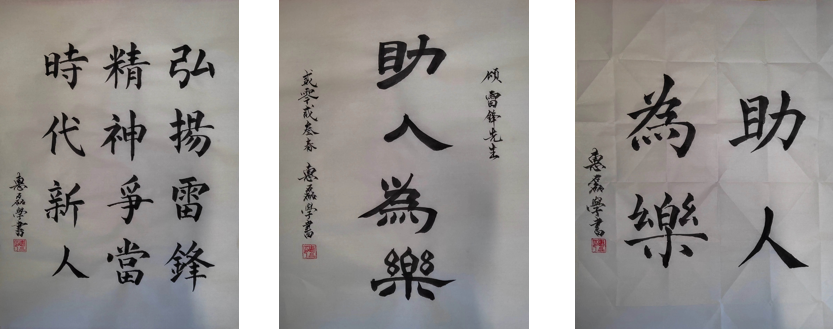 弘揚雷鋒
精神爭當
時代新人
惠磊學書
頌雷鋒先生
助人為樂
貳零貳叁春 惠磊學書
助人
為樂
惠磊學書